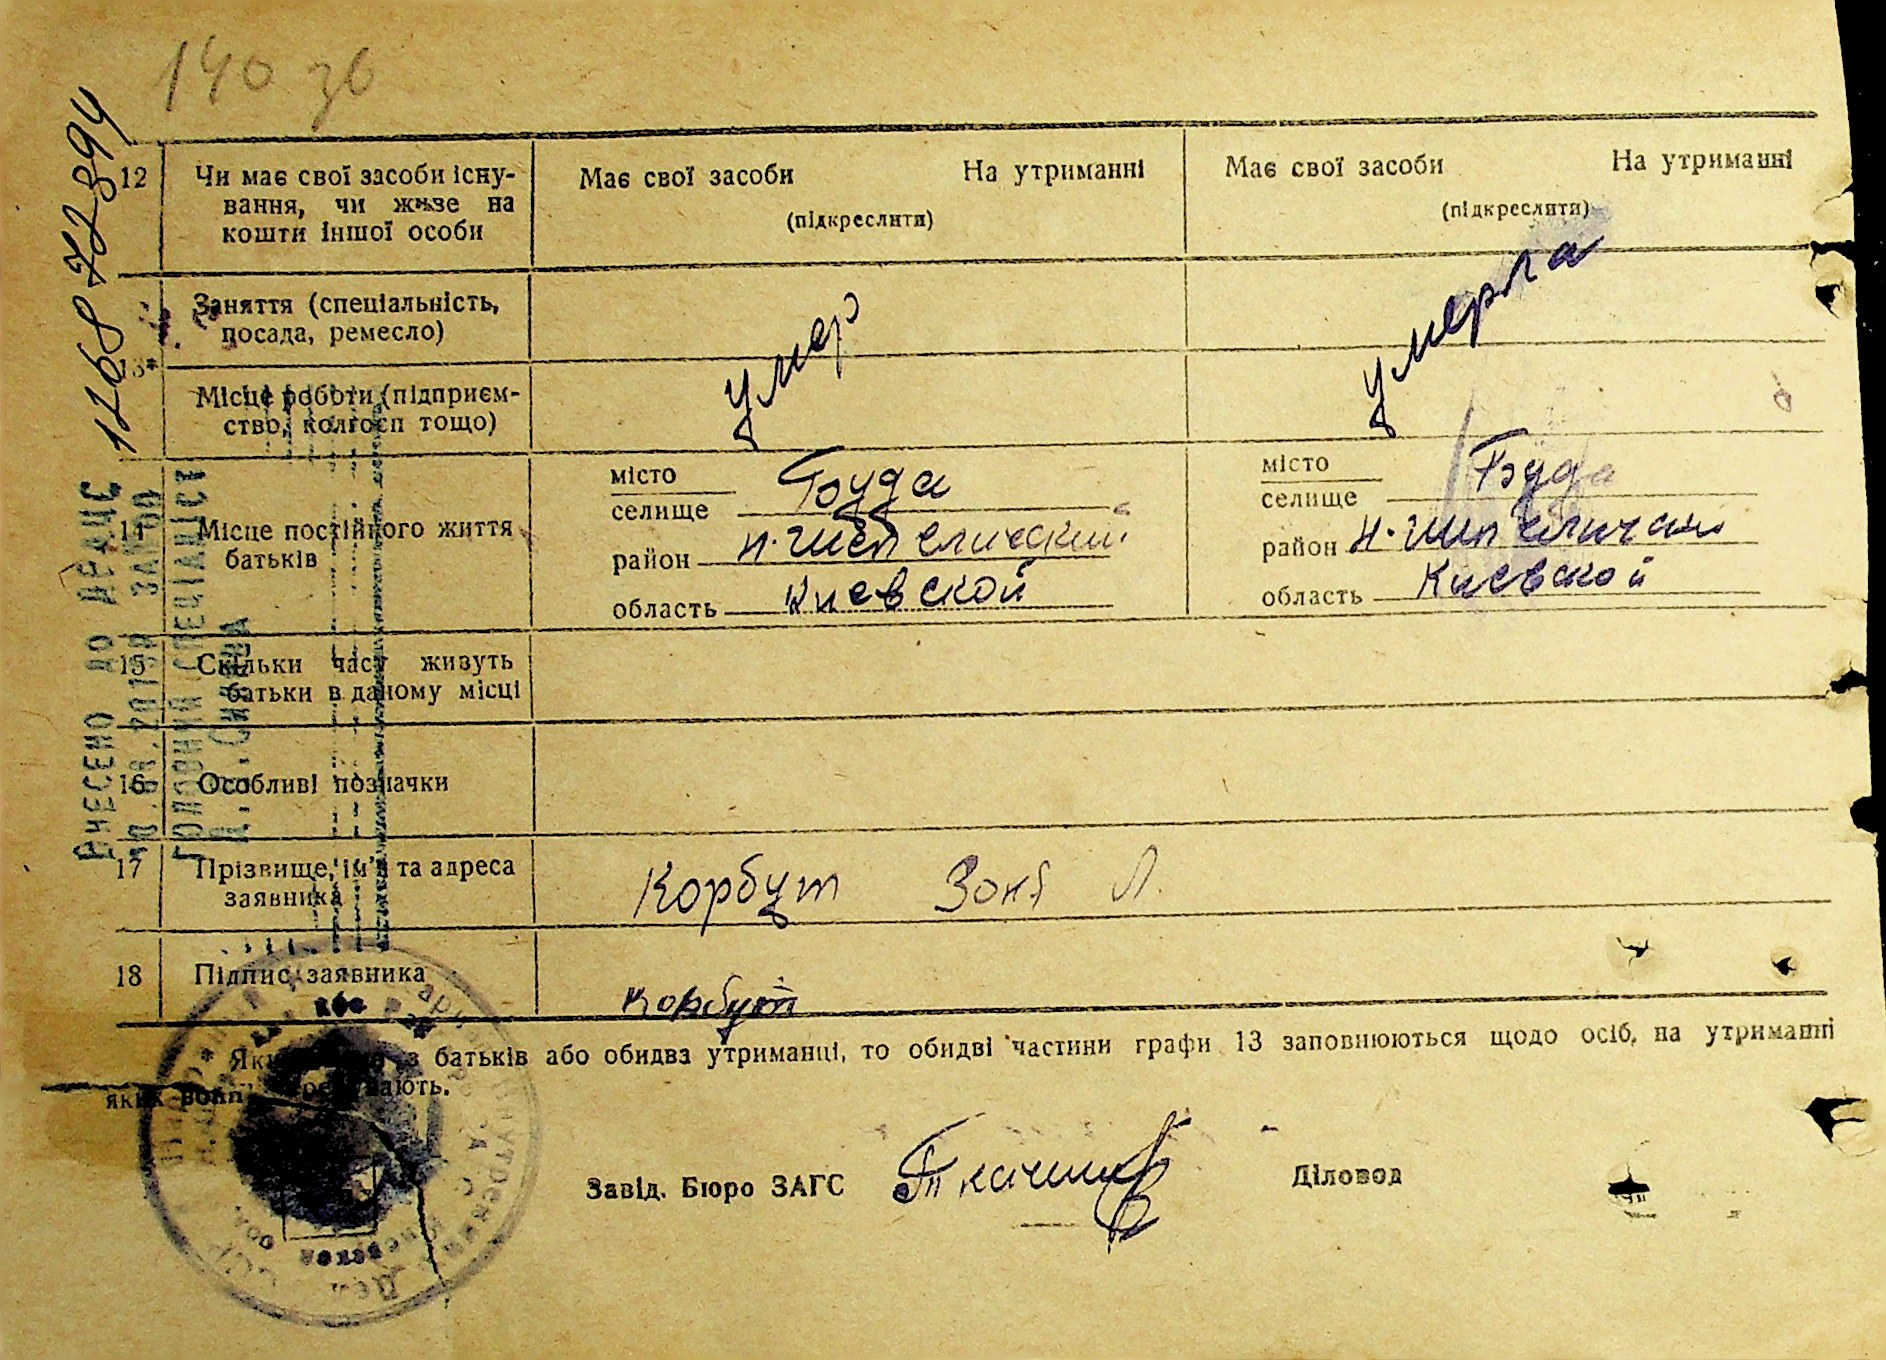 140 зв
12 Чи має свої засоби існу-
вання, чи живе на
кошти іншої особи
Має свої засоби На утриманні
(підкреслити)
Має свої засоби На утриманні
(підкреслити)
13* Заняття (спеціальність,
посада, ремесло)
Місце роботи (підприєм-
ство, колгосп тощо)
умер
умерла
14 Місце постійного життя
батьків
місто
селище Буда
район Н. Шепеличский
область Киевской
місто
селище Буда
район Н. Шепеличский
область Киевской
15 Скільки часу живуть
батьки в даному місці
16 Особливі позначки
17 Прізвище, ім'я та адреса
заявника
Корбут Зоня Л.
18 Підпис заявника
Корбут
з батьків або обидва утриманці, то обидві частини графи 13 заповнюються щодо осіб, на утриманні
яких вони
Завід. Бюро ЗАГС
Діловод
Внесено до ДРАЦС
Головний спеціаліст